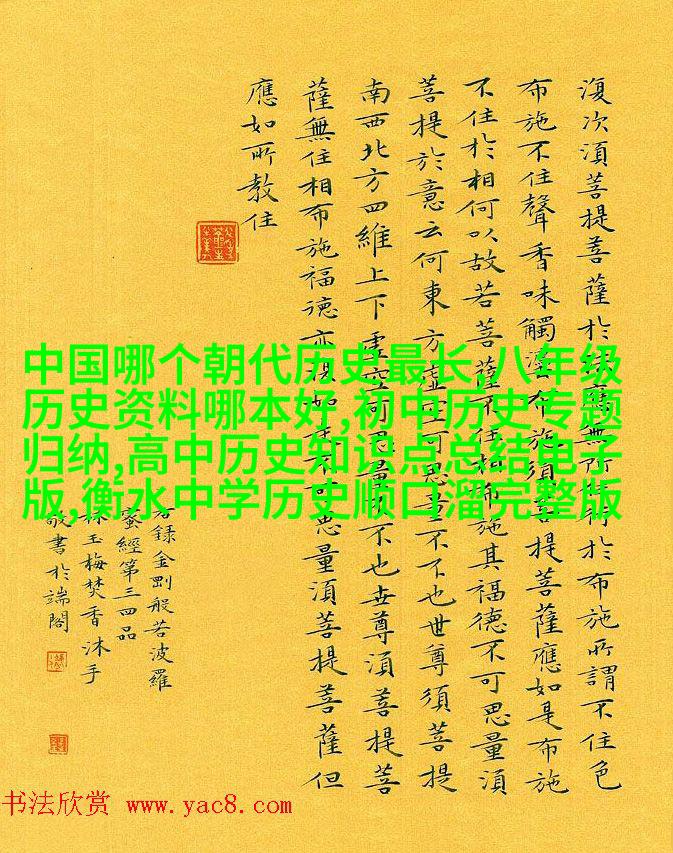 復次湏菩提菩薩於法應無所住行於布施所謂不住色
布施不住聲香味觸法布施須菩提菩薩應如是布施
不住於相何以故若菩薩不住相布施其福德不可思量湏
菩提於意云何東方虛空可思量不不也世尊須菩提
南西北方四維上下虛空可思量不不也世尊湏菩提菩
薩無住相布施福德亦復如是不可思量湏菩提菩薩但
應如所教住
右錄金剛般若波羅
蜜經第三四品
林玉梅焚香沐手
敬書於端閣
中国哪个朝代历史最长,八年级
历史资料哪本好,初中历史专题
归纳,高中历史知识点总结电子
版,衡水中学历史顺口溜完整版
书法欣赏 www.yac8.com